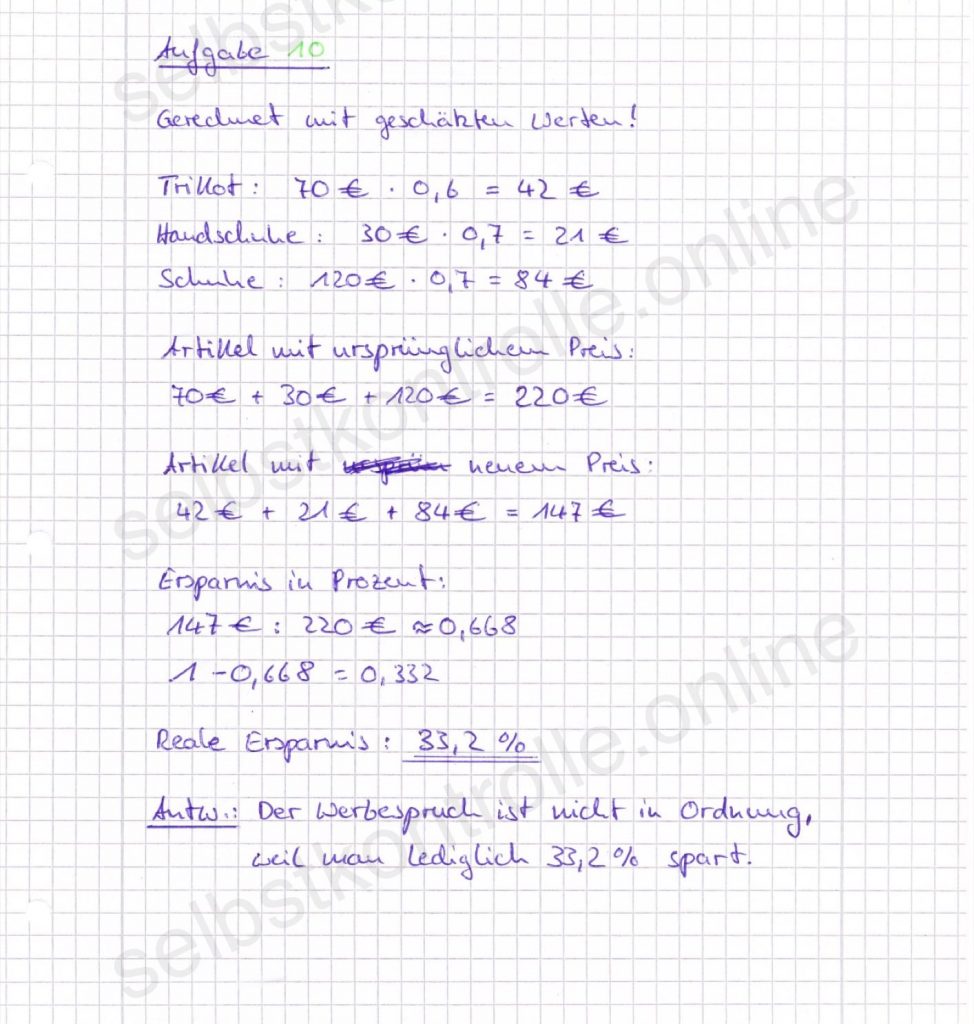 Aufgabe 10
Gerechnet mit geschätzten Werten!
Trikot: 70 € · 0,6 = 42 €
Handschuhe: 30 € · 0,7 = 21 €
Schuhe: 120 € · 0,7 = 84 €
Artikel mit ursprünglichem Preis:
70 € + 30 € + 120 € = 220 €
Artikel mit neuem Preis:
42 € + 21 € + 84 € = 147 €
Ersparnis in Prozent:
147 € : 220 € ≈ 0,668
1 - 0,668 = 0,332
Reale Ersparnis: 33,2 %
Antw.: Der Werbespruch ist nicht in Ordnung,
weil man lediglich 33,2 % spart.
selbstkontrolle.online
selbstkontrolle.online
selbstkontrolle.online